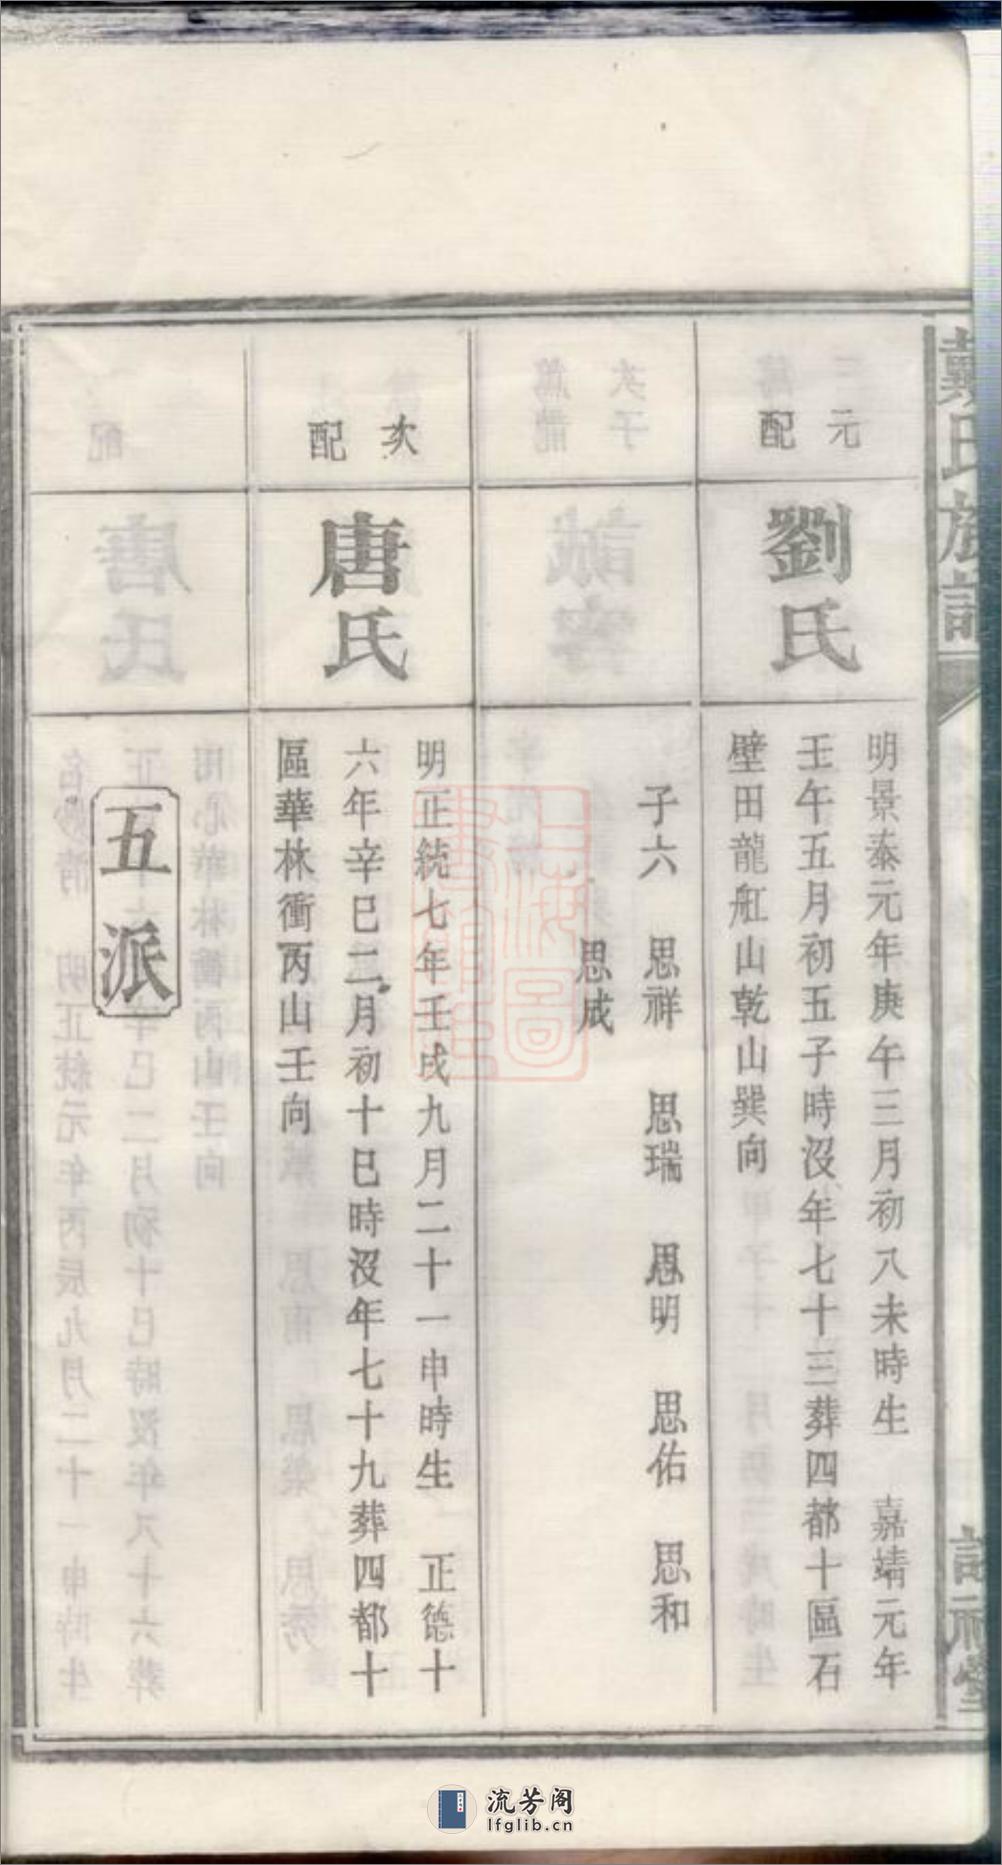 戴氏族譜
元配
劉氏
明景泰元年庚午三月初八未時生　嘉靖元年
壬午五月初五子時沒年七十三葬四都十區石
壁田龍舡山乾山巽向
子六　思祥　思瑞　思明　思佑　思和
思成
次配
唐氏
明正統七年壬戌九月二十一申時生　正德十
六年辛巳二月初十巳時沒年七十九葬四都十
區華林衝丙山壬向
五派
上海圖
書館藏
流芳阁
lfglib.cn